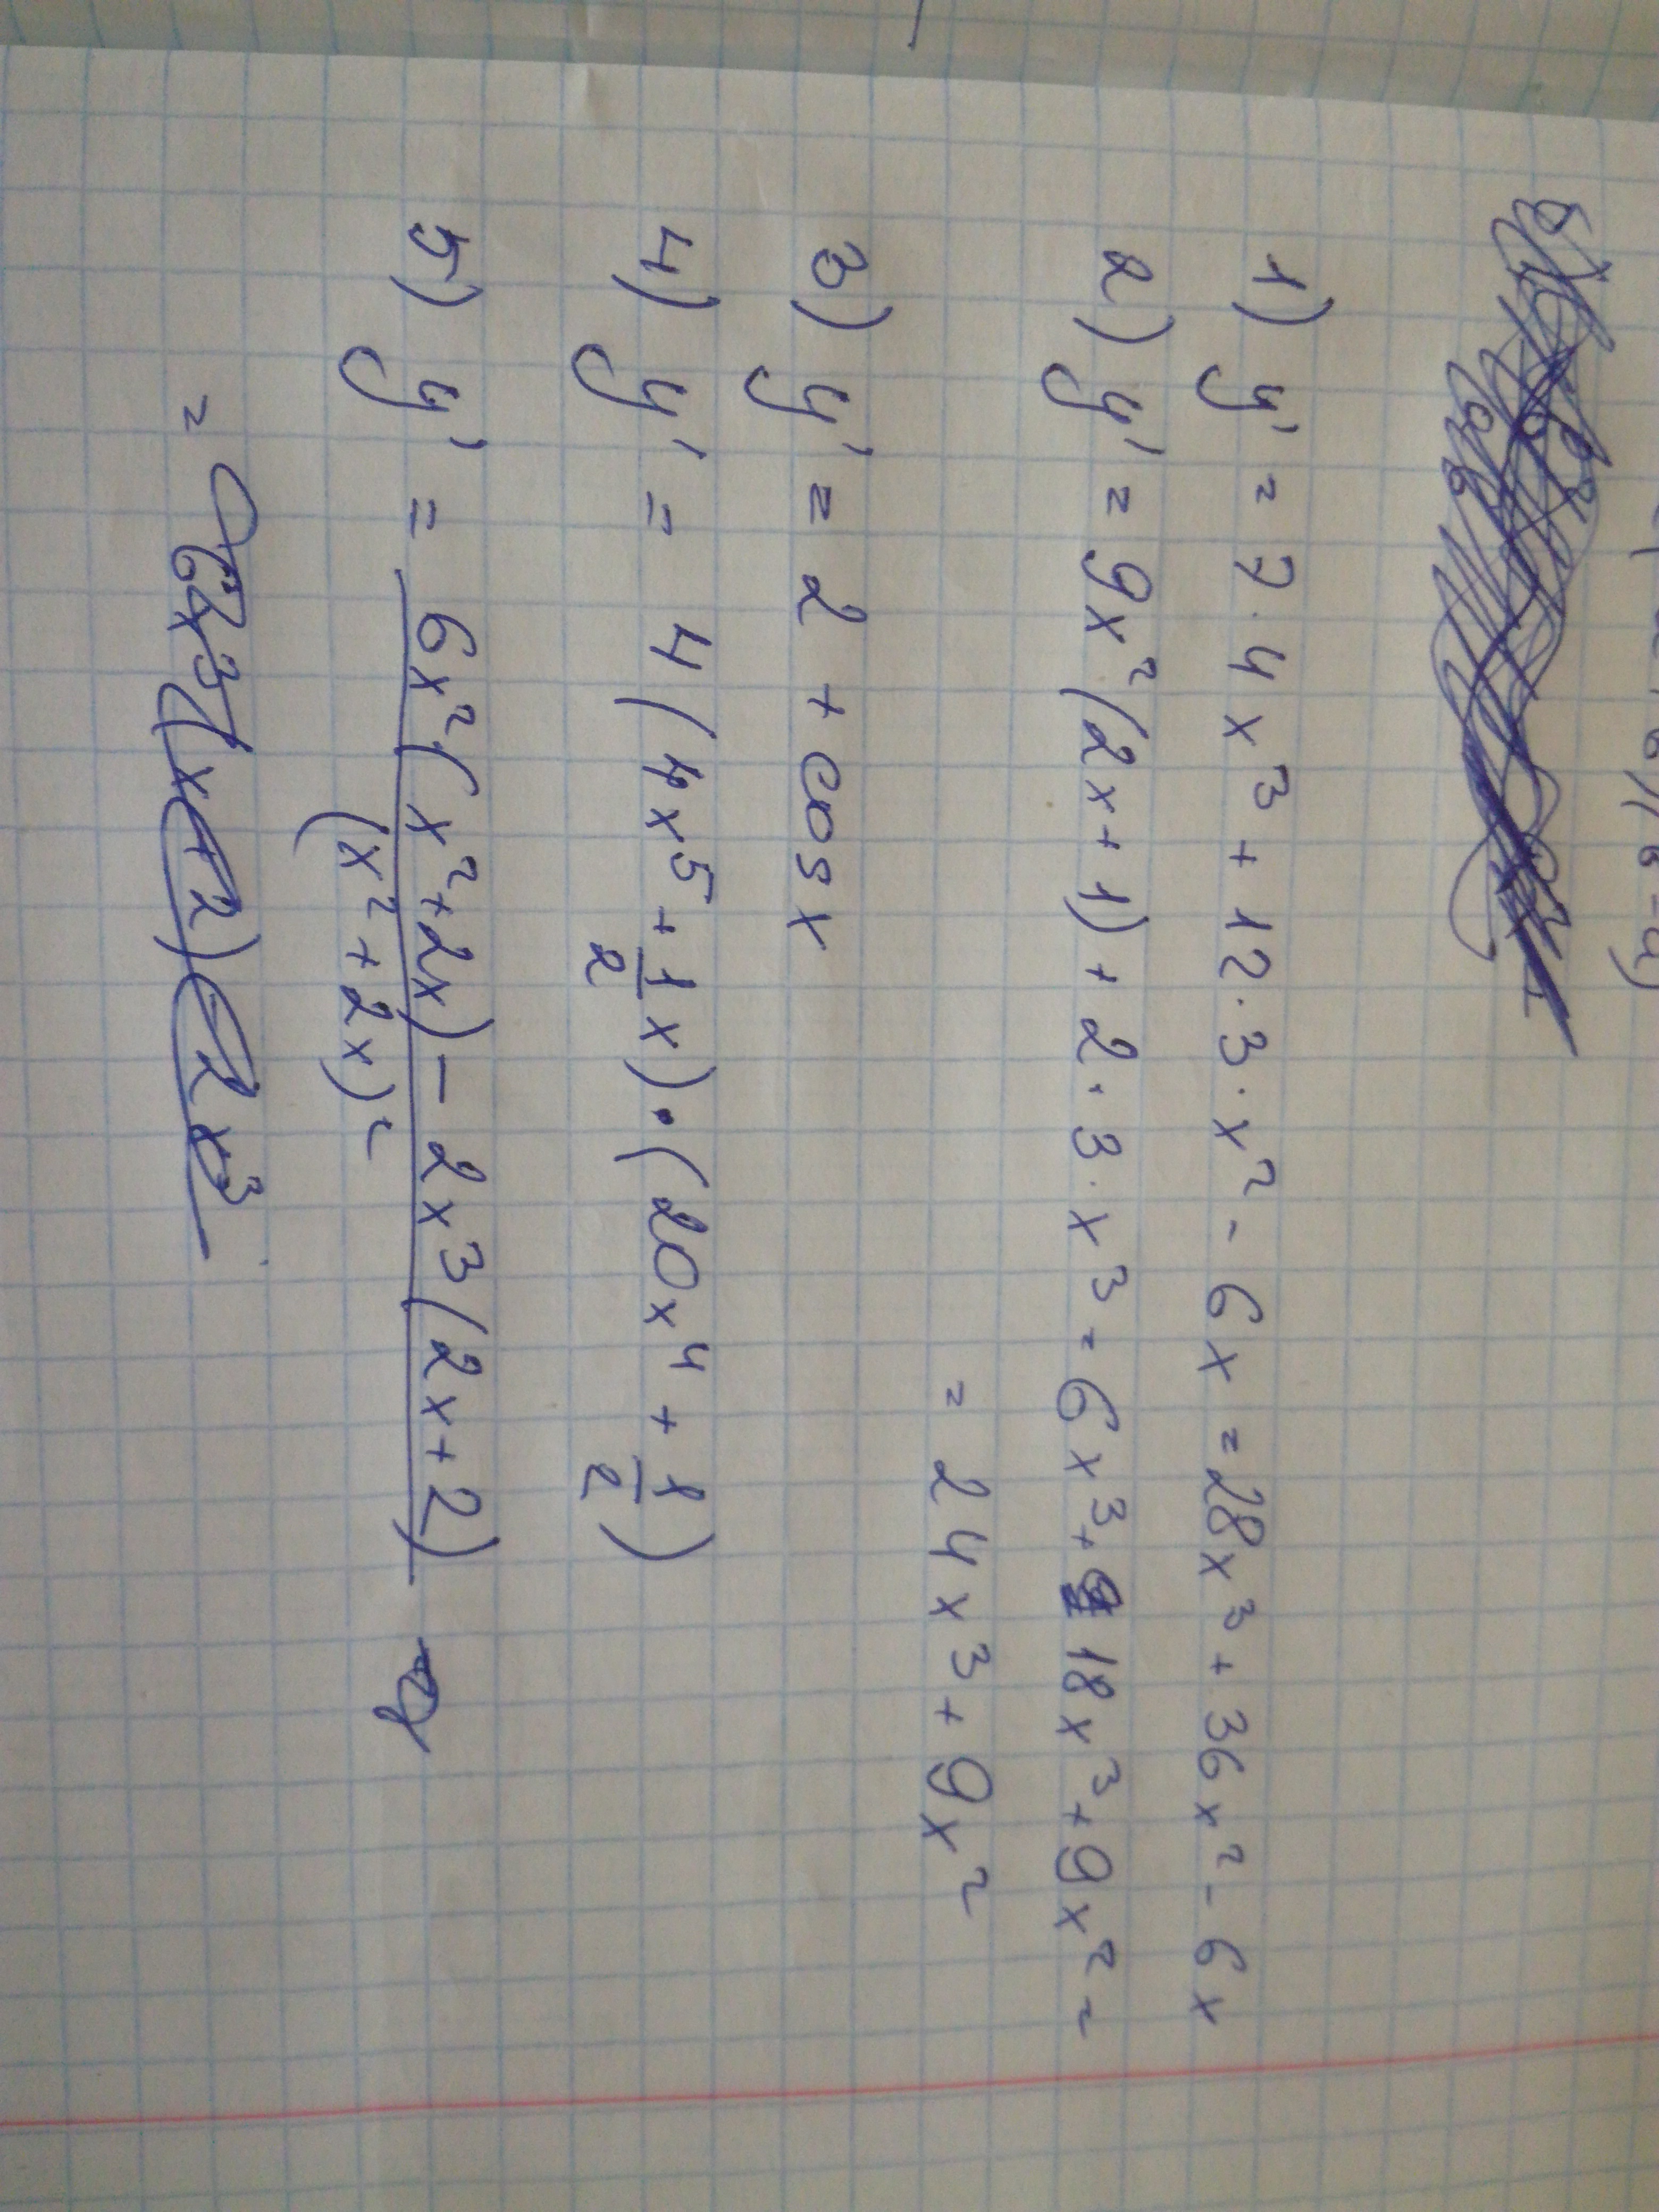 1) y' = 7·4x³ + 12·3·x² - 6x = 28x³ + 36x² - 6x
2) y' = 9x²(2x+1) + 2·3·x³ = 6x³ + 18x³ + 9x² =
= 24x³ + 9x²
3) y' = 2 + cos x
4) y' = 4(4x⁵ + 1/2 x)·(20x⁴ + 1/2)
5) y' = (6x²(x²+2x) - 2x³(2x+2))/(x²+2x)²
=